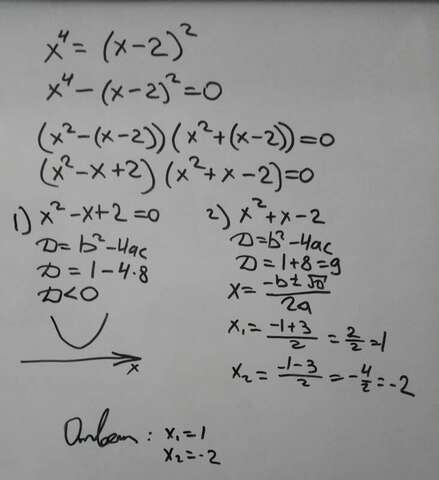 x⁴ = (x-2)²
x⁴ - (x-2)² = 0
(x² - (x-2)) (x² + (x-2)) = 0
(x² - x + 2) (x² + x - 2) = 0
1) x² - x + 2 = 0
D = b² - 4ac
D = 1 - 4·8
D < 0
x
2) x² + x - 2
D = b² - 4ac
D = 1 + 8 = 9
x = (-b ± √D)/2a
x₁ = (-1+3)/2 = 2/2 = 1
x₂ = (-1-3)/2 = -4/2 = -2
Ответ: x₁ = 1
x₂ = -2